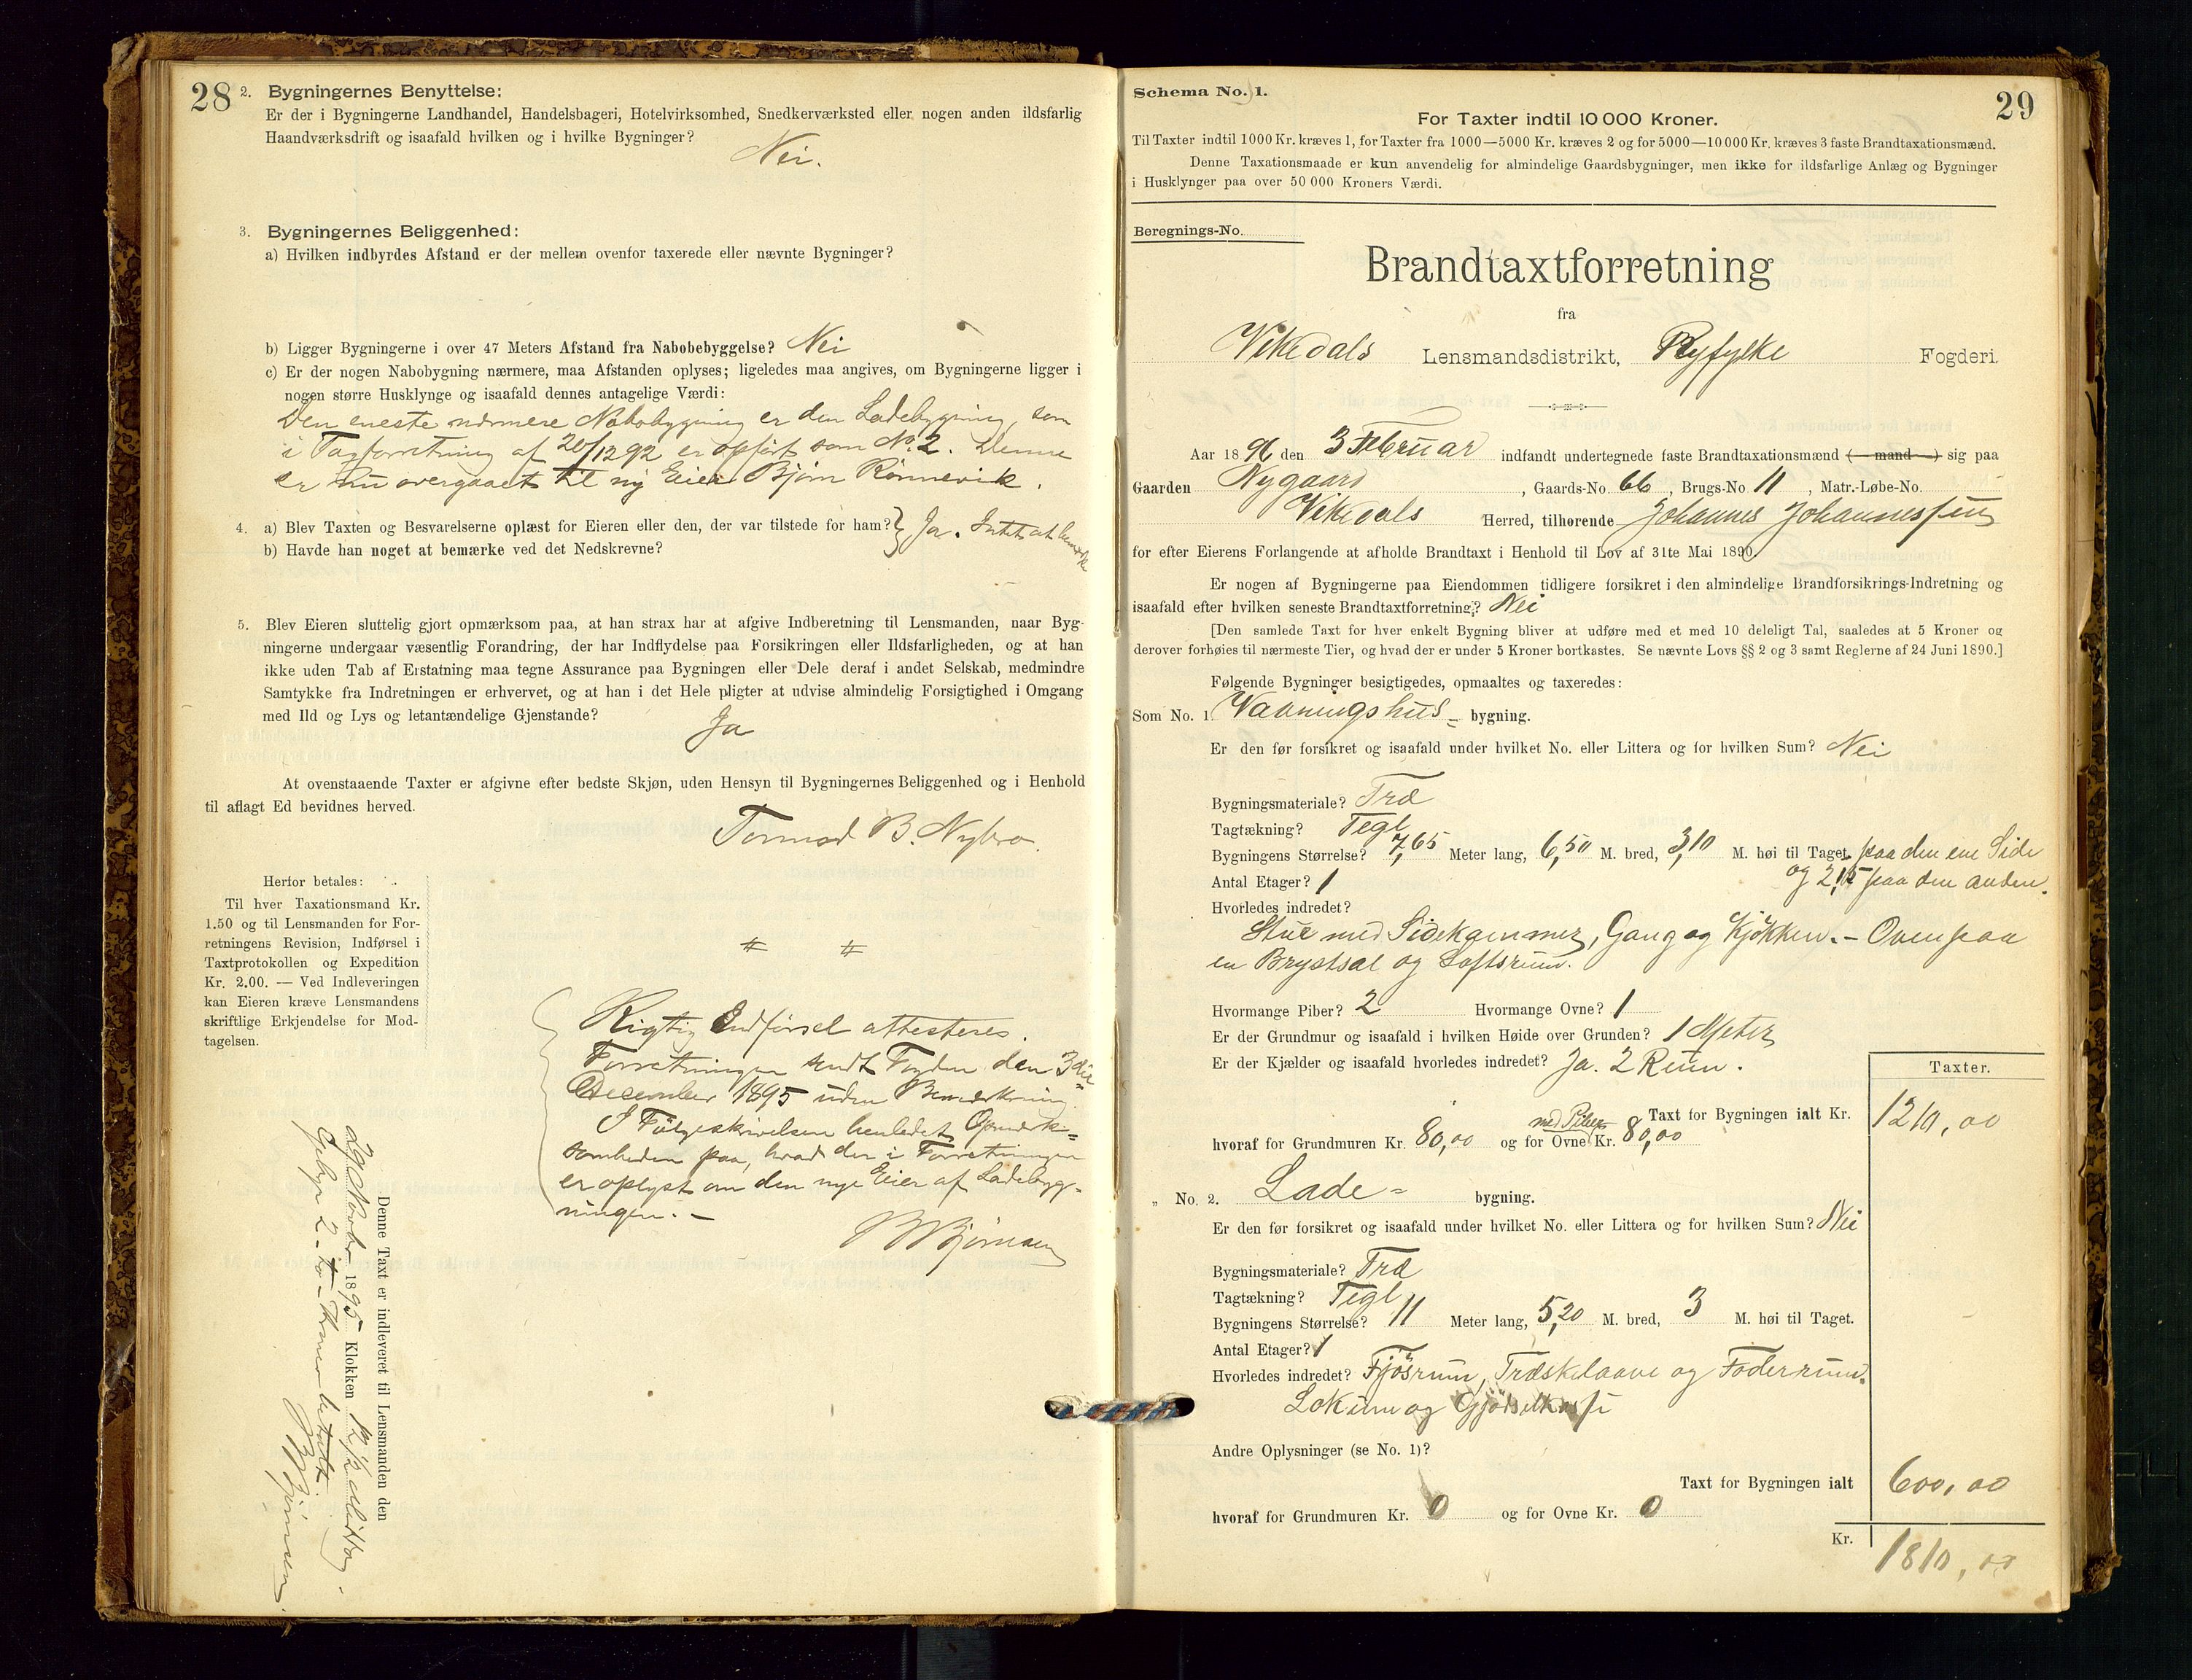 28
2. Bygningernes Benyttelse:
Er der i Bygningerne Landhandel, Handelsbageri, Hotelvirksomhed, Snedkerværksted eller nogen anden ildsfarlig
Haandværksdrift og isaafald hvilken og i hvilke Bygninger?
Nei.
3. Bygningernes Beliggenhed:
a) Hvilken indbyrdes Afstand er der mellem ovenfor taxerede eller nævnte Bygninger?
b) Ligger Bygningerne i over 47 Meters Afstand fra Nabobebyggelse? Nei
c) Er der nogen Nabobygning nærmere, maa Afstanden oplyses; ligeledes maa angives, om Bygningerne ligger i
nogen større Husklynge og isaafald dennes antagelige Værdi:
Den eneste nærmere Nabobygning er den Ladebygning, som
i Taxforretning af 20/12 92 er opført som No. 2. Denne
er nu overgaaet til ny Eier Bjørn Rønnevik.
4. a) Blev Taxten og Besvarelserne oplæst for Eieren eller den, der var tilstede for ham? } Ja. Intet at bemærke
b) Havde han noget at bemærke ved det Nedskrevne?
5. Blev Eieren sluttelig gjort opmærksom paa, at han strax har at afgive Indberetning til Lensmanden, naar Byg-
ningerne undergaar væsentlig Forandring, der har Indflydelse paa Forsikringen eller Ildsfarligheden, og at han
ikke uden Tab af Erstatning maa tegne Assurance paa Bygningen eller Dele deraf i andet Selskab, medmindre
Samtykke fra Indretningen er erhvervet, og at han i det Hele pligter at udvise almindelig Forsigtighed i Omgang
med Ild og Lys og letantændelige Gjenstande?
Ja
At ovenstaaende Taxter er afgivne efter bedste Skjøn, uden Hensyn til Bygningernes Beliggenhed og i Henhold
til aflagt Ed bevidnes herved.
Tormod B. Nybro.
Herfor betales:
Til hver Taxationsmand Kr.
1.50 og til Lensmanden for For-
retningens Revision, Indførsel i
Taxtprotokollen og Expedition
Kr. 2.00. — Ved Indleveringen
kan Eieren kræve Lensmandens
skriftlige Erkjendelse for Mod-
tagelsen.
Rigtig Indførsel attesteres.
Forretningen sendt Fogden den 3die
December 1895 uden Bemærkning.
I Følgeskrivelsen henledet Opmærk=
somheden paa, hvad der i Forretningen
er oplyst om den nye Eier af Ladebyg-
ningen. —
B Bjørnsen
Denne Taxt er indleveret til Lensmanden den
29 Novbr 1895 Klokken 12 1/2 Middag.
Gebyr 2 - to - Kroner betalt.
B Bjørnsen
29
Schema No. 1.
For Taxter indtil 10 000 Kroner.
Til Taxter indtil 1000 Kr. kræves 1, for Taxter fra 1000—5000 Kr. kræves 2 og for 5000—10 000 Kr. kræves 3 faste Brandtaxationsmænd.
Denne Taxationsmaade er kun anvendelig for almindelige Gaardsbygninger, men ikke for ildsfarlige Anlæg og Bygninger
i Husklynger paa over 50 000 Kroners Værdi.
Beregnings-No.
Brandtaxtforretning
fra
Vikedals Lensmandsdistrikt, Ryfylke Fogderi.
Aar 1896 den 3 Februar indfandt undertegnede faste Brandtaxationsmænd (— mand —) sig paa
Gaarden Nygaard, Gaards-No. 66, Brugs-No 11, Matr.-Løbe-No.
Vikedals Herred, tilhørende Johannes Johannessen
for efter Eierens Forlangende at afholde Brandtaxt i Henhold til Lov af 31te Mai 1890.
Er nogen af Bygningerne paa Eiendommen tidligere forsikret i den almindelige Brandforsikrings-Indretning og
isaafald efter hvilken seneste Brandtaxtforretning? Nei
[Den samlede Taxt for hver enkelt Bygning bliver at udføre med et med 10 deleligt Tal, saaledes at 5 Kroner og
derover forhøies til nærmeste Tier, og hvad der er under 5 Kroner bortkastes. Se nævnte Lovs §§ 2 og 3 samt Reglerne af 24 Juni 1890.]
Følgende Bygninger besigtigedes, opmaaltes og taxeredes:
Som No. 1. Vaaningshus= bygning.
Er den før forsikret og isaafald under hvilket No. eller Littera og for hvilken Sum? Nei
Bygningsmateriale? Træ
Tagtækning? Tegl
Bygningens Størrelse? 7,65 Meter lang, 6,50 M. bred, 3,10 M. høi til Taget. paa den ene Side
Antal Etager? 1 og 2,15 paa den anden.
Hvorledes indredet?
Stue med Sidekammer, Gang og Kjøkken. - Ovenpaa
en Brystsal og Loftsrum.
Hvormange Piber? 2 Hvormange Ovne? 1
Er der Grundmur og isaafald i hvilken Høide over Grunden? 1 Meter
Er der Kjælder og isaafald hvorledes indredet? Ja. 2 Rum.
Taxter.
Taxt for Bygningen ialt Kr. 1210,00
hvoraf for Grundmuren Kr. 80,00 og for Ovne med Piber Kr. 80,00
„ No. 2. Lade= bygning.
Er den før forsikret og isaafald under hvilket No. eller Littera og for hvilken Sum? Nei
Bygningsmateriale? Træ
Tagtækning? Tegl
Bygningens Størrelse? 11 Meter lang, 5,20 M. bred, 3 M. høi til Taget.
Antal Etager? 1
Hvorledes indredet? Fjøsrum, Træskelaave og Foderrum.
Lokum og Gjødselkasse
Andre Oplysninger (se No. 1)?
Taxt for Bygningen ialt 600,00
hvoraf for Grundmuren Kr. 0 og for Ovne Kr. 0
Kr. 1810,00